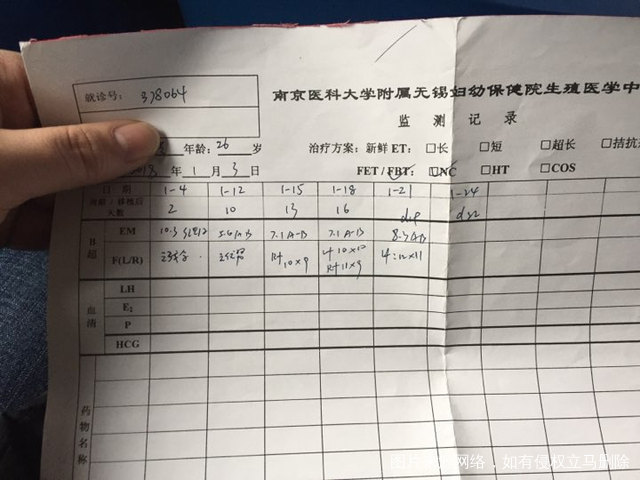 就诊号： 378064
南京医科大学附属无锡妇幼保健院生殖医学中
监 测 记 录
年龄： 26 岁
治疗方案：新鲜 ET： □长 □短 □超长 □拮抗
年 1 月 3 日
FET / FBT： □NC □HT □COS
日 期 1-4 1-12 1-15 1-18 1-21 1-24
天数 2 10 13 16
B超 EM 7.1 A-B 7.1 A-B 8.5 A-B
F(L/R) R4 10×9 L4 10×10 R4 11×9 L4:12×11
血清 LH
E₂
P
HCG
药物名称
图片来源网络，如有侵权立马删除